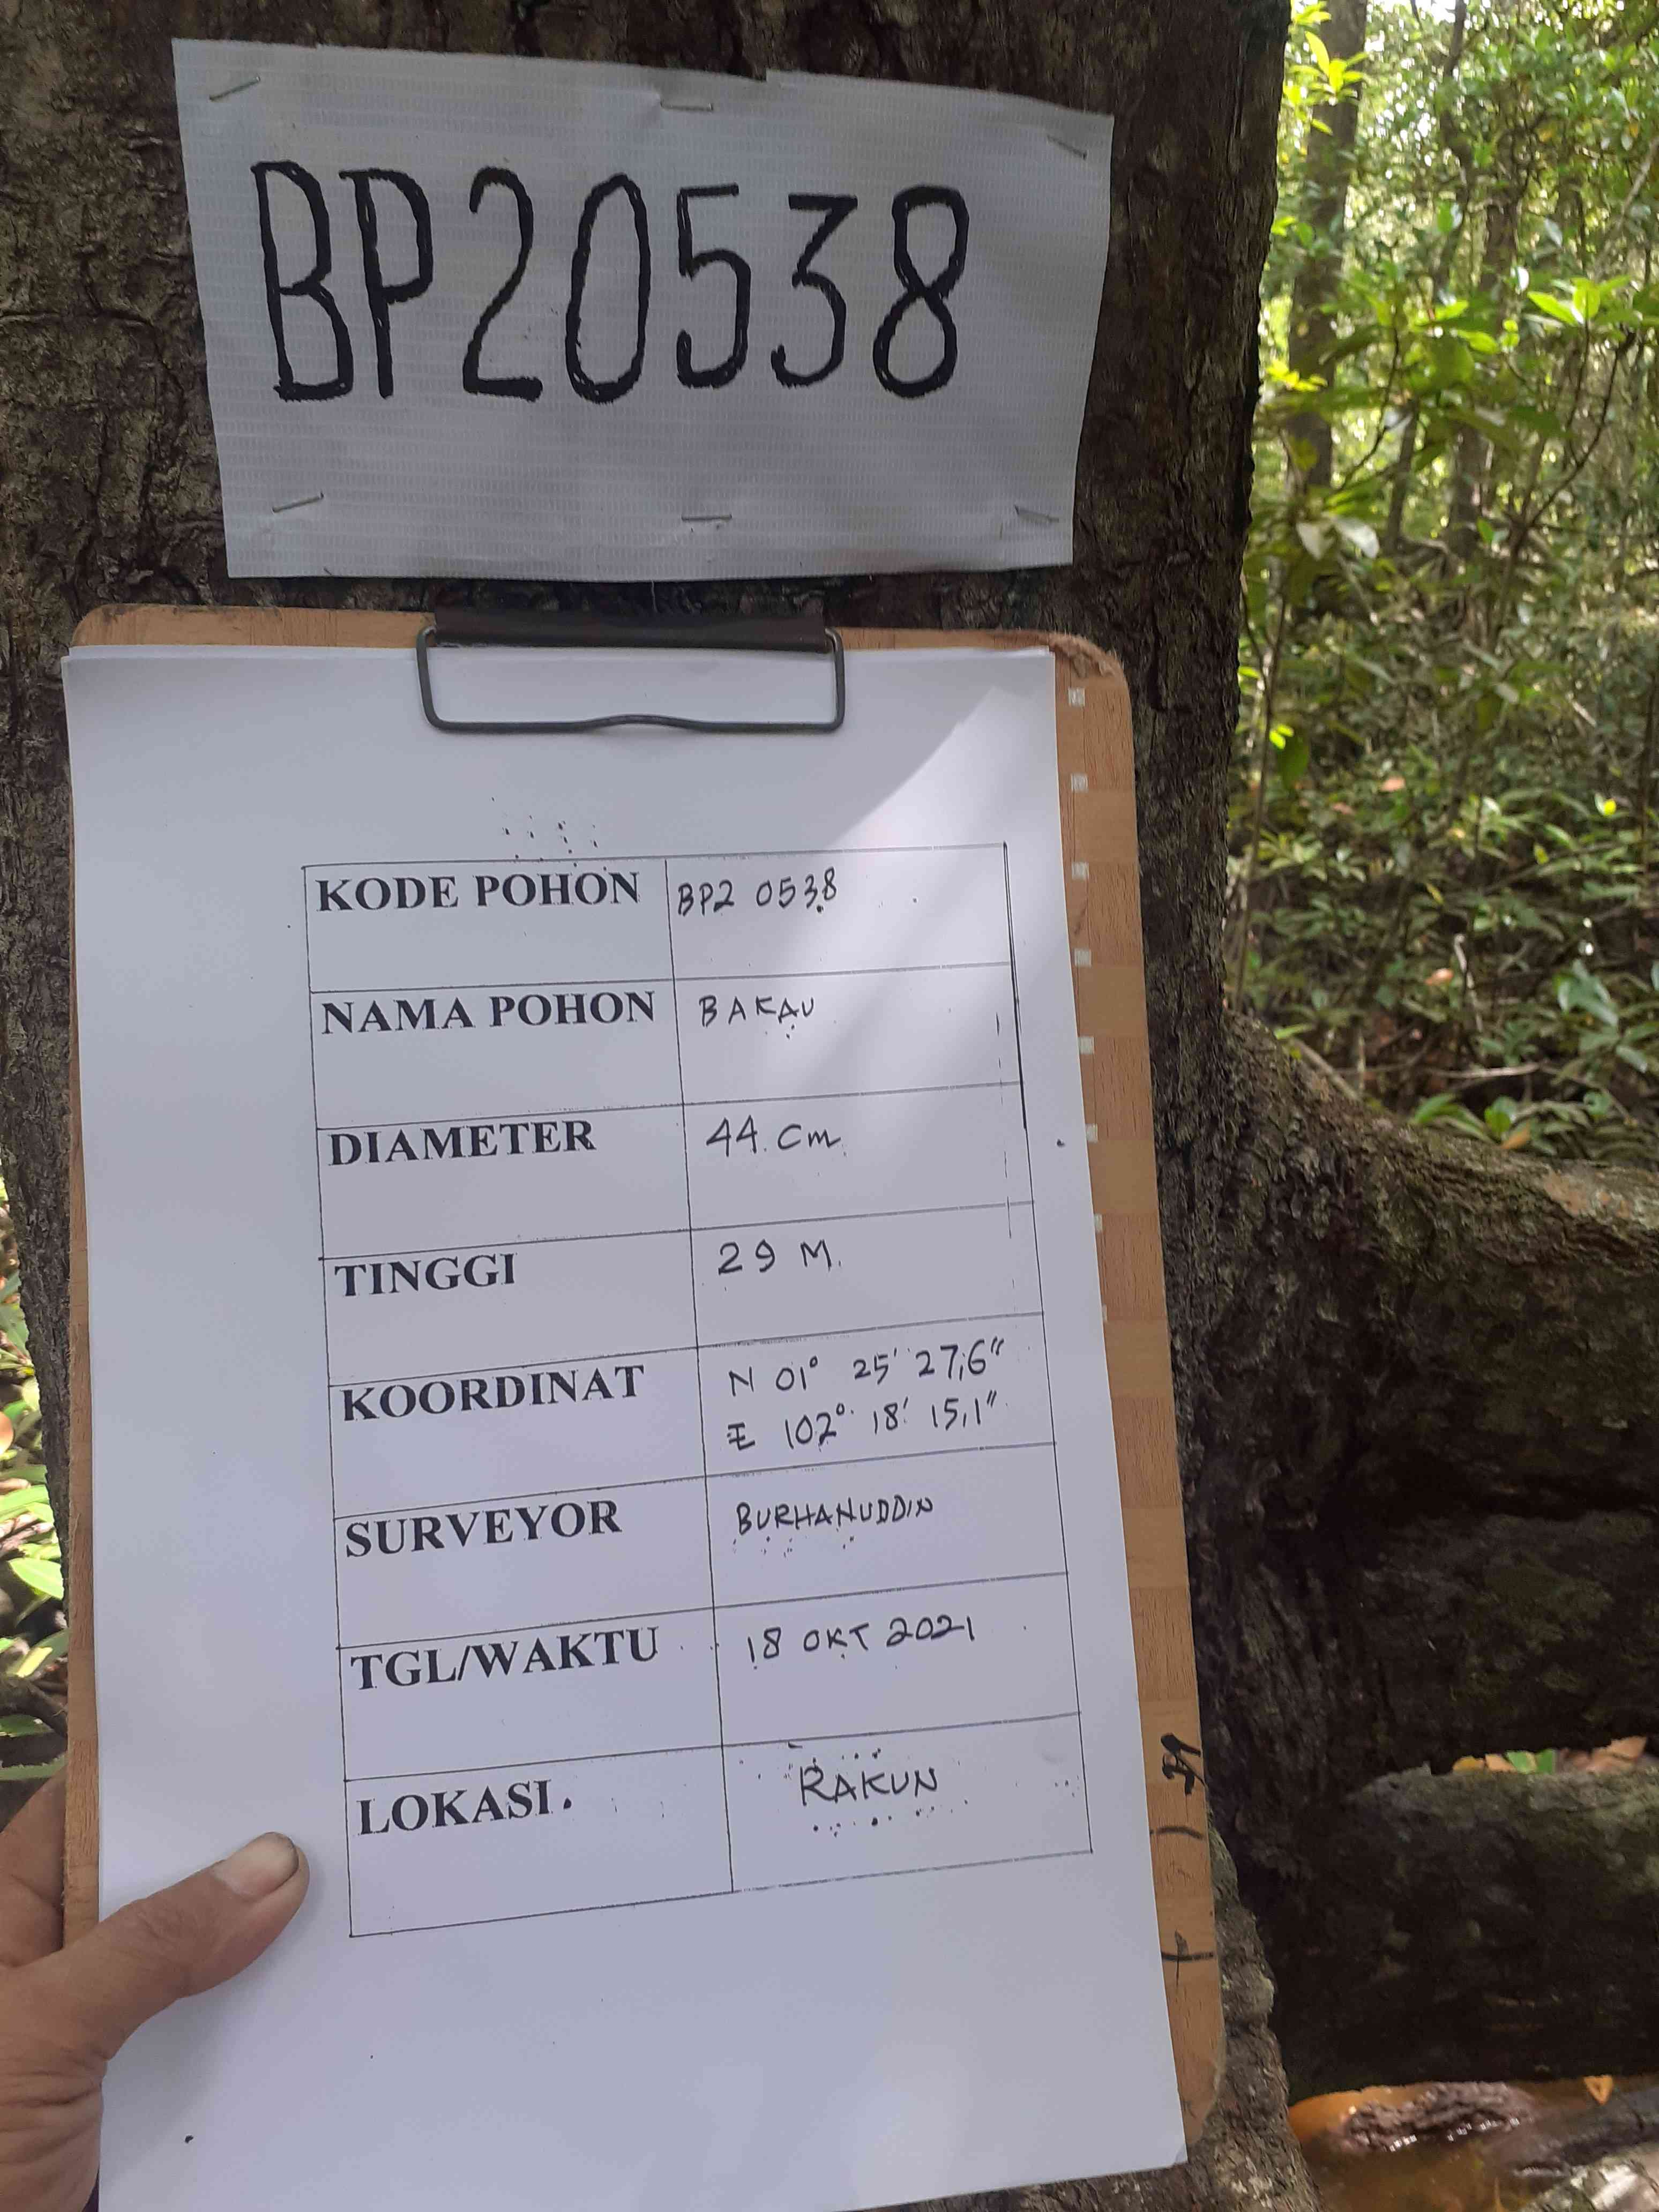 BP20538
KODE POHON BP2 0538
NAMA POHON BAKAU
DIAMETER 44 Cm
TINGGI 29 M.
KOORDINAT N 01° 25' 27,6"
E 102° 18' 15,1"
SURVEYOR BURHANUDDIN
TGL/WAKTU 18 OKT 2021
LOKASI. RAKUN